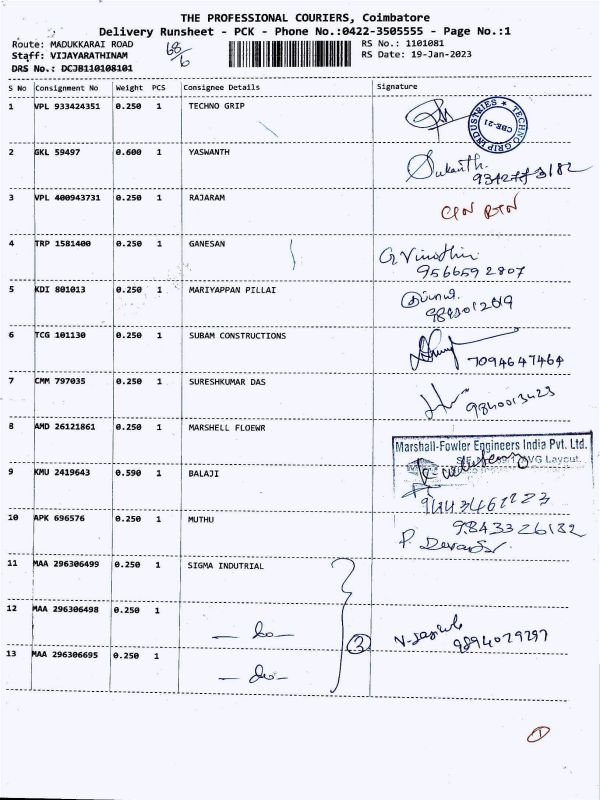 THE PROFESSIONAL COURIERS, Coimbatore
Delivery Runsheet - PCK - Phone No.:0422-3505555 - Page No.:1
Route: MADUKKARAI ROAD
68/6
RS No.: 1101081
Staff: VIJAYARATHINAM
RS Date: 19-Jan-2023
DRS No.: DCJB110108101
S No Consignment No Weight PCS Consignee Details Signature
1 VPL 933424351 0.250 1 TECHNO GRIP
TECHNO GRIP INDUSTRIES ★ CBE-21
2 GKL 59497 0.600 1 YASWANTH
Sukanth.
3 VPL 400943731 0.250 1 RAJARAM
4 TRP 1581400 0.250 1 GANESAN
G Vinothini
9566592807
5 KDI 801013 0.250 1 MARIYAPPAN PILLAI
6 TCG 101130 0.250 1 SUBAM CONSTRUCTIONS
7094647464
7 CMM 797035 0.250 1 SURESHKUMAR DAS
9840013423
8 AMD 26121861 0.250 1 MARSHELL FLOEWR
Marshall-Fowler Engineers India Pvt. Ltd.
VG Layout.
9 KMU 2419643 0.590 1 BALAJI
10 APK 696576 0.250 1 MUTHU
9843326182
11 MAA 296306499 0.250 1 SIGMA INDUTRIAL
12 MAA 296306498 0.250 1
— do —
3
9894029297
13 MAA 296306695 0.250 1
— do —
1